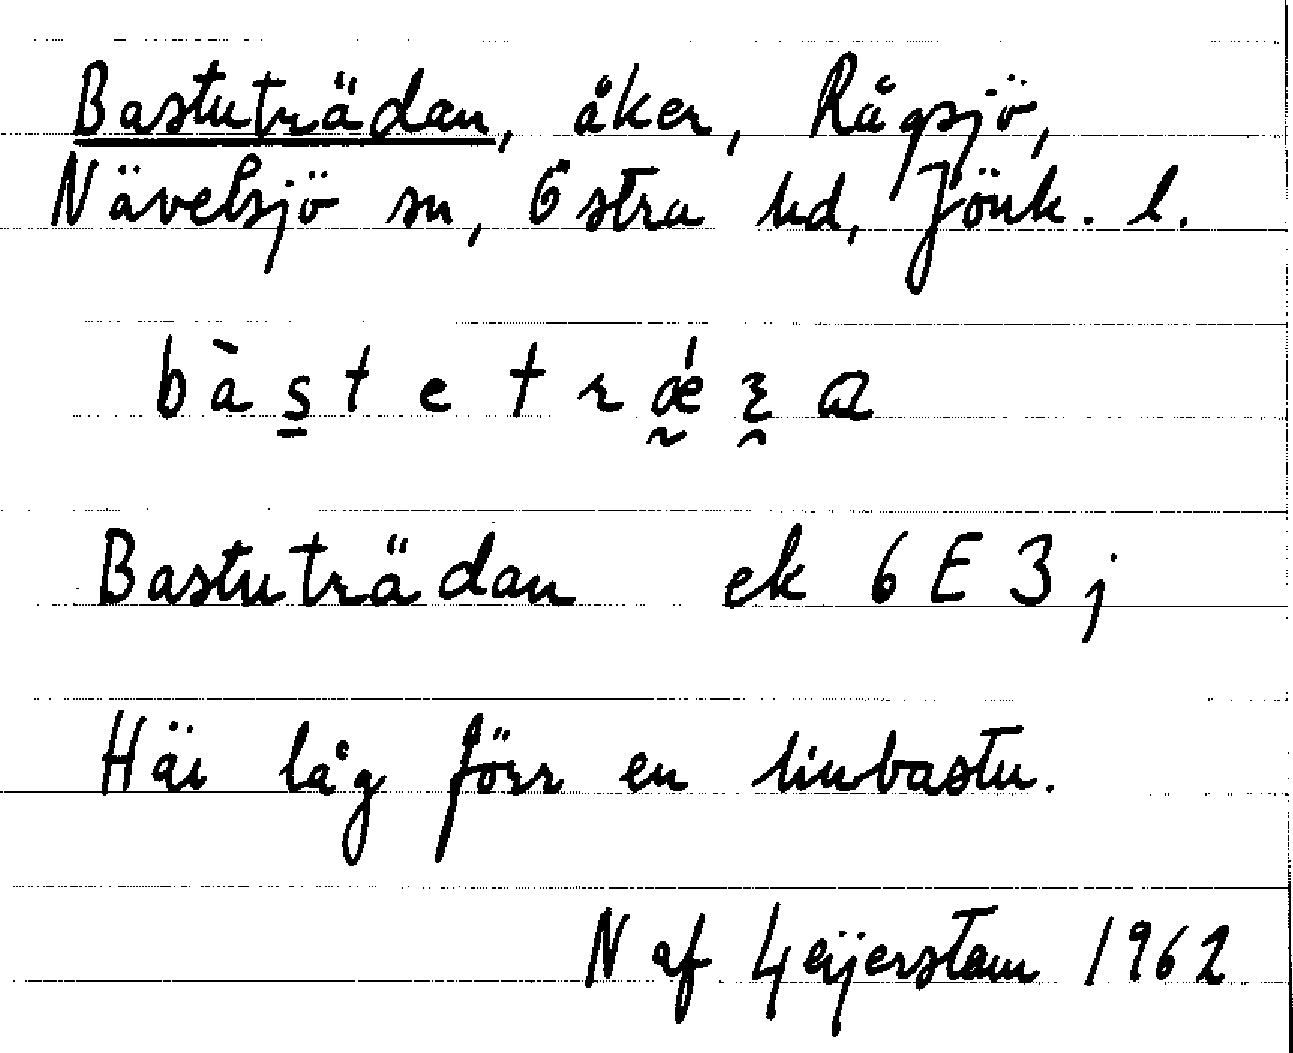 Bastuträdan, åker, Rågsjö,
Nävelsjö sn, Östra hd, Jönk. l.
Bastuträdan ek 6E3j
Här låg förr en linbastu.
N af Geijerstam 1962